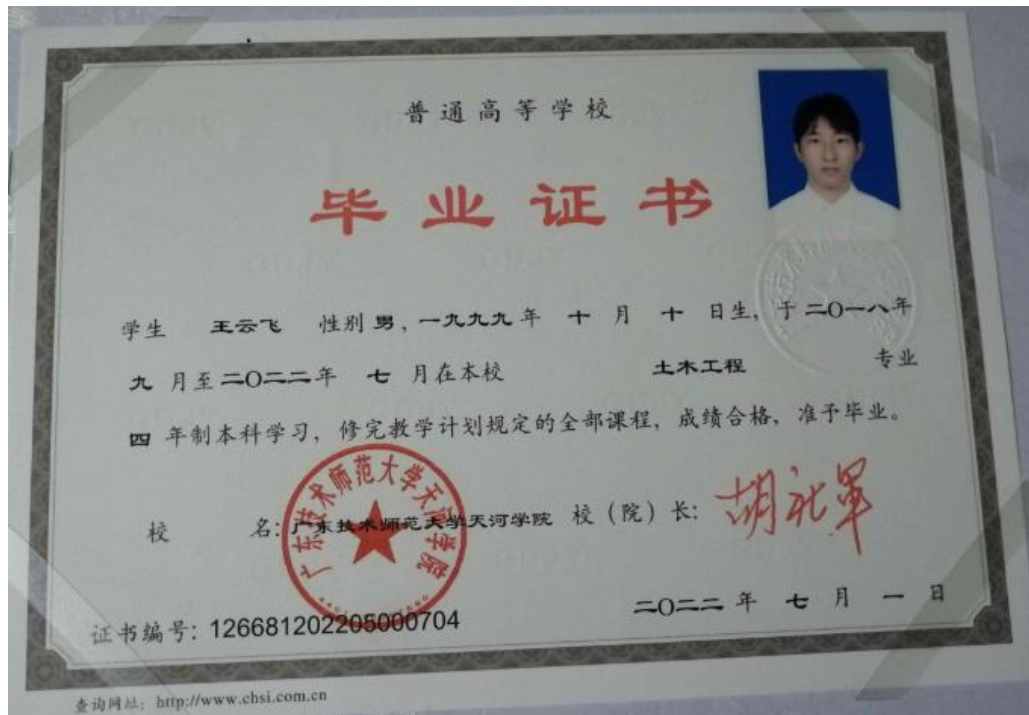 普通高等学校
毕业证书
学生 王云飞 性别 男，一九九九年 十 月 十 日生，于二〇一八年
九 月至二〇二二年 七 月在本校 土木工程 专业
四 年制本科学习，修完教学计划规定的全部课程，成绩合格，准予毕业。
校 名：广东技术师范大学天河学院 校（院）长：
广东技术师范大学天河学院
证书编号：126681202205000704
二〇二二年 七 月 一 日
查询网址：http://www.chsi.com.cn